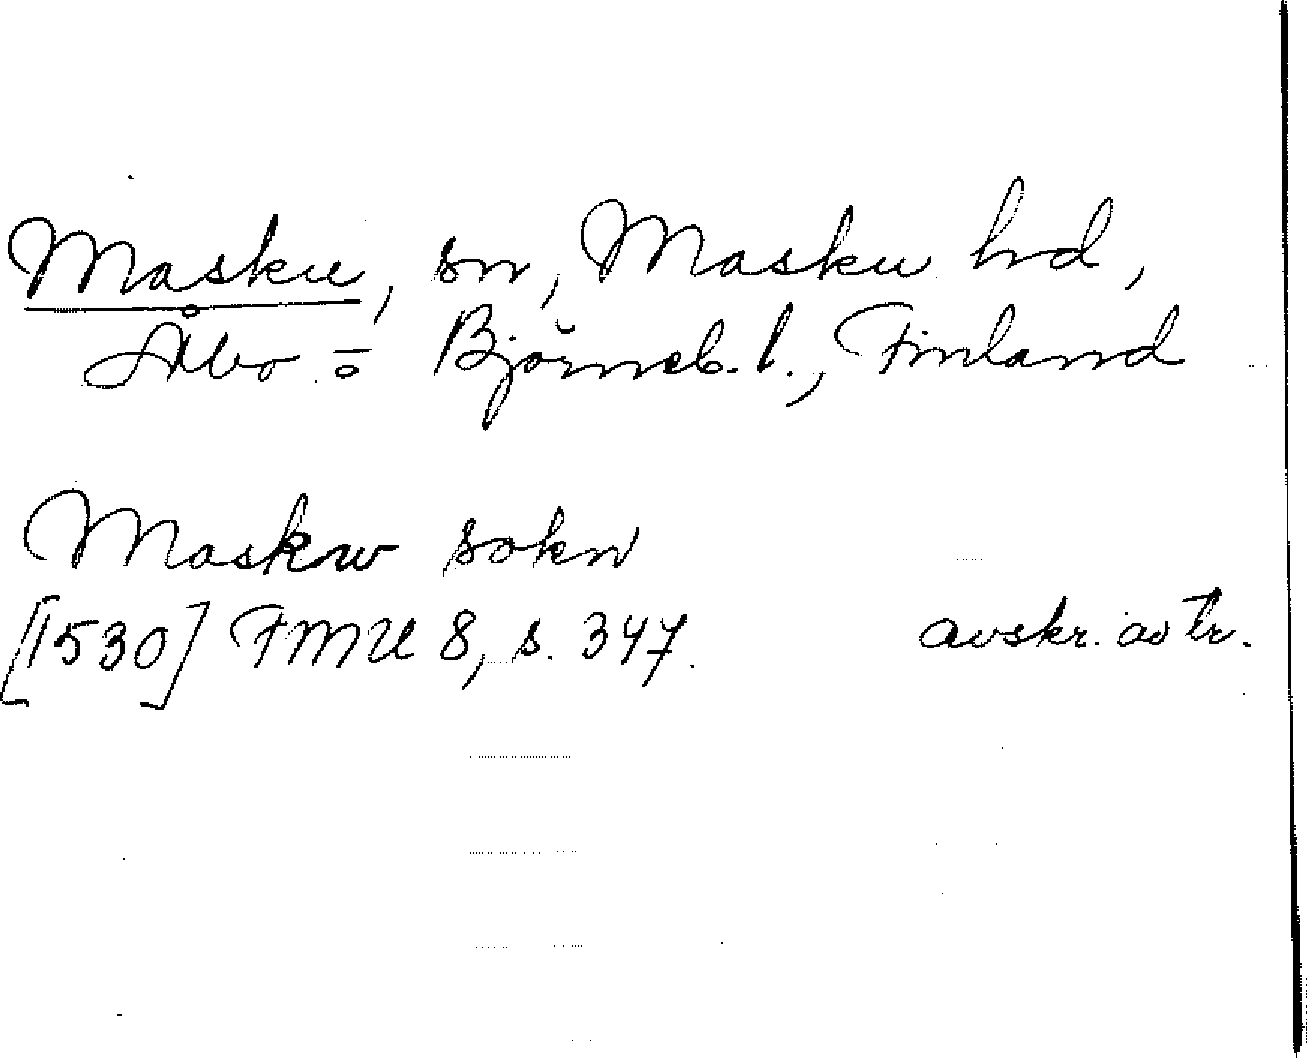 Masku, sn, Masku hd,
Åbo- o Björneb. l., Finland
Maskw sokn
[1530] FMU 8, s. 347. avskr. av tr.